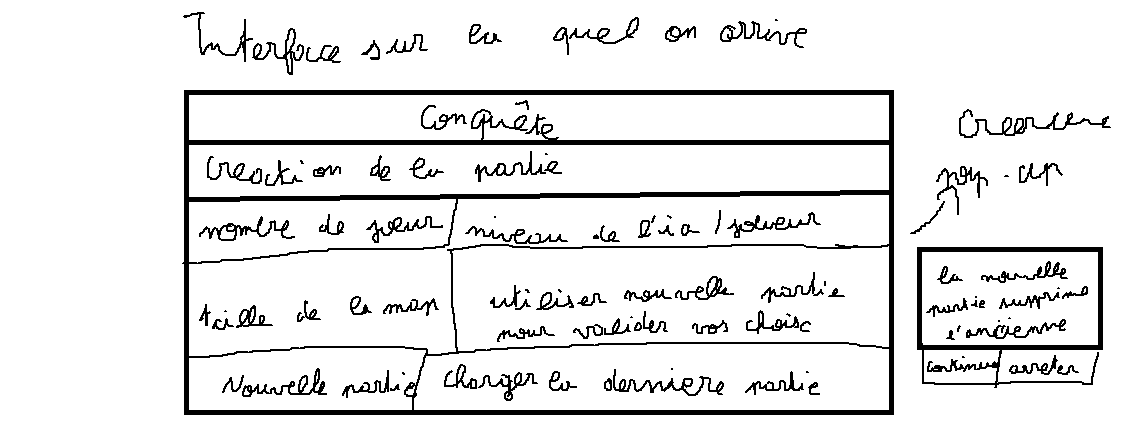 Interface sur la quel on arrive
Conquête
Creation de la partie
nombre de joeur
niveau de l'ia / joueur
taille de la map
utiliser nouvelle partie
pour valider vos choisc
Nouvelle partie
Charger la derniere partie
Creer une
pop-up
la nouvelle
partie supprime
l'ancienne
continuer
arreter